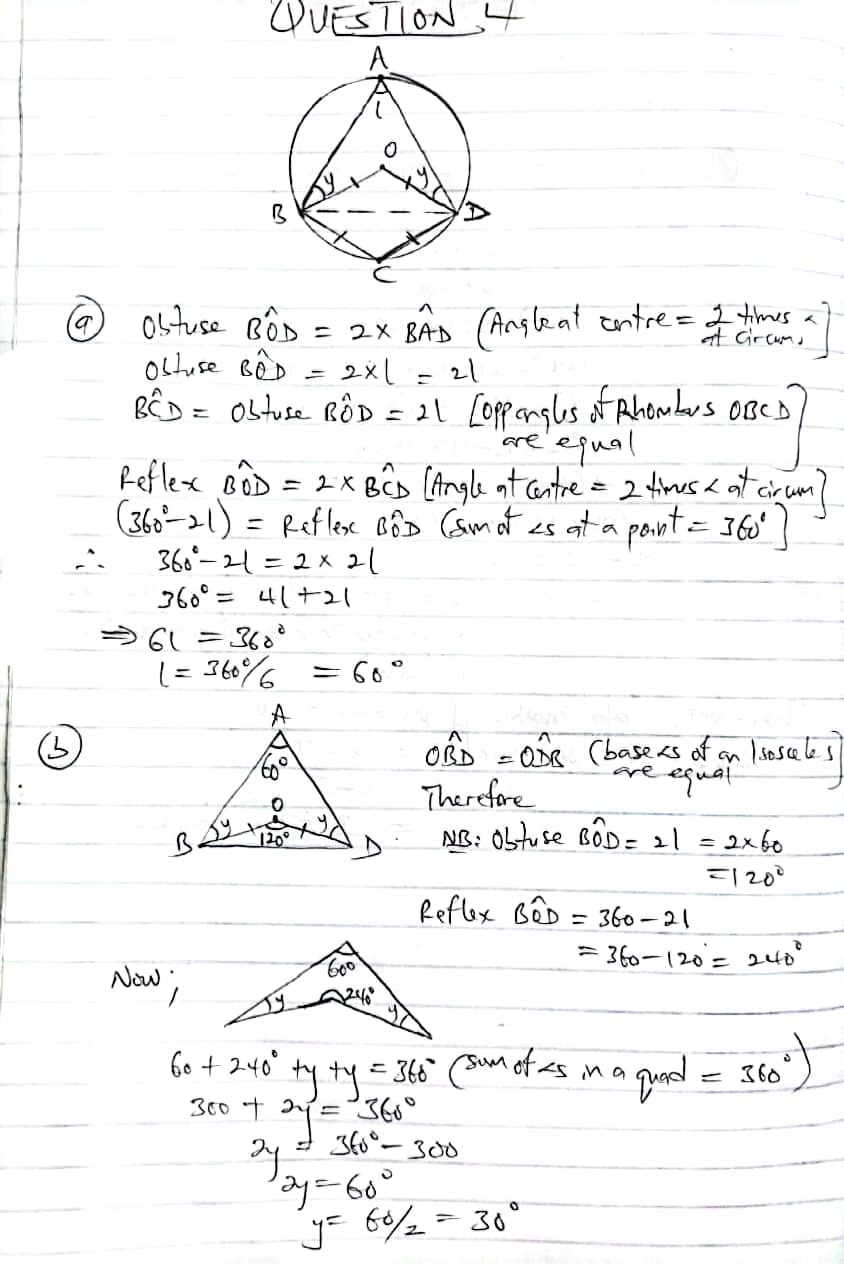 QUESTION 4
A
l
O
y
y
B
D
C
(a) Obtuse BÔD = 2 x BÂD (Angle at centre = 2 times < at circum.]
Obtuse BÔD = 2xl = 2l
BĈD = Obtuse BÔD = 2l [opp angles of Rhombus OBCD are equal]
Reflex BÔD = 2 x BĈD [Angle at centre = 2 times < at circum]
(360°-2l) = Reflex BÔD (sum of <s at a point = 360°]
∴ 360°-2l = 2 x 2l
360° = 4l + 2l
⇒ 6l = 360°
l = 360°/6 = 60°
(b)
A
60°
O
y
y
B
120°
D
OB̂D = OD̂B (base <s of an Isosceles are equal]
Therefore
NB: Obtuse BÔD = 2l = 2x60
=120°
Reflex BÔD = 360 - 2l
= 360-120° = 240°
Now;
60°
y
240°
y
60 + 240° +y +y = 360° (sum of <s in a quad = 360°)
300 + 2y = 360°
2y = 360° - 300
2y = 60°
y = 60/2 = 30°